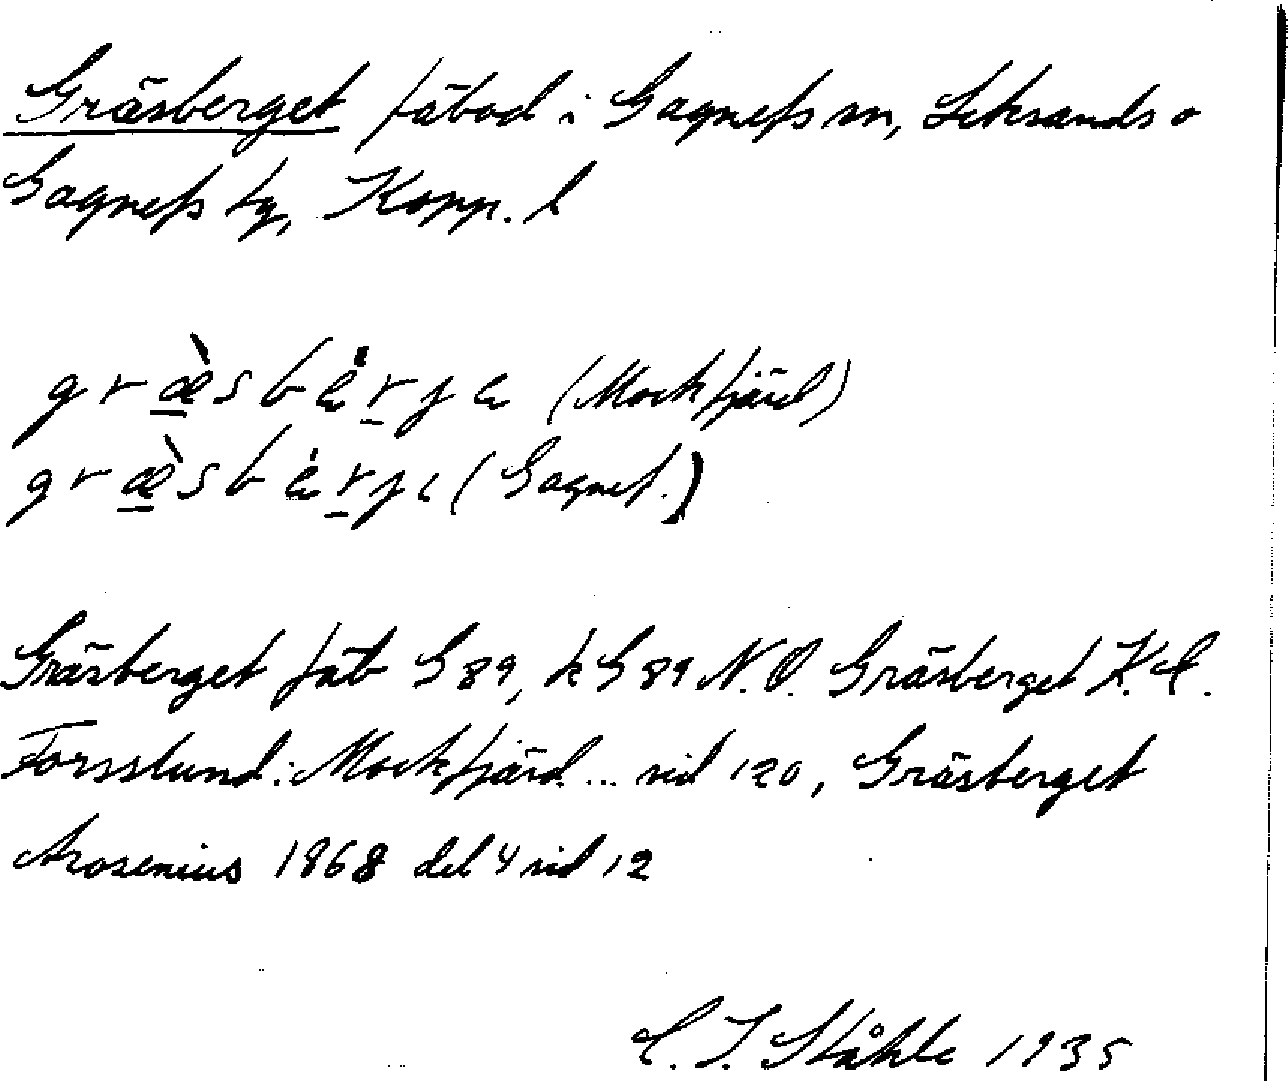 Gräsberget fäbod i Gagnefs sn, Leksands o
Gagnefs tg, Kopp. l
græ̀sbè̇rjä (Mockfjärd)
græ̀sbė̀rjɩ (Gagnef.)
Gräsberget fäb G 89, k G 89 N.O. Gräsberget K.E.
Forsslund: Mockfjärd... sid 120, Gräsberget
Arosenius 1868 del 4 sid 12
C. I. Ståhle 1935